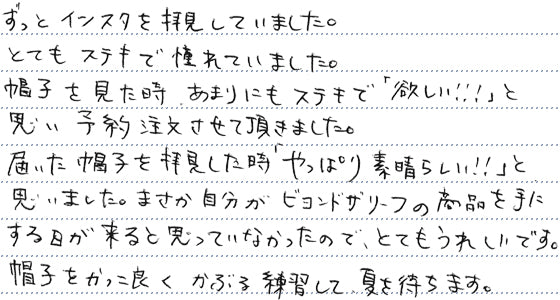 ずっとインスタを拝見していました。
とてもステキで憧れていました。
帽子を見た時、あまりにもステキで「欲しい!!!」と
思い予約注文させて頂きました。
届いた帽子を拝見した時「やっぱり素晴らしい!!」と
思いました。まさか自分がビヨンドザリーフの商品を手に
する日が来ると思っていなかったので、とてもうれしいです。
帽子をかっこ良くかぶる練習して、夏を待ちます。